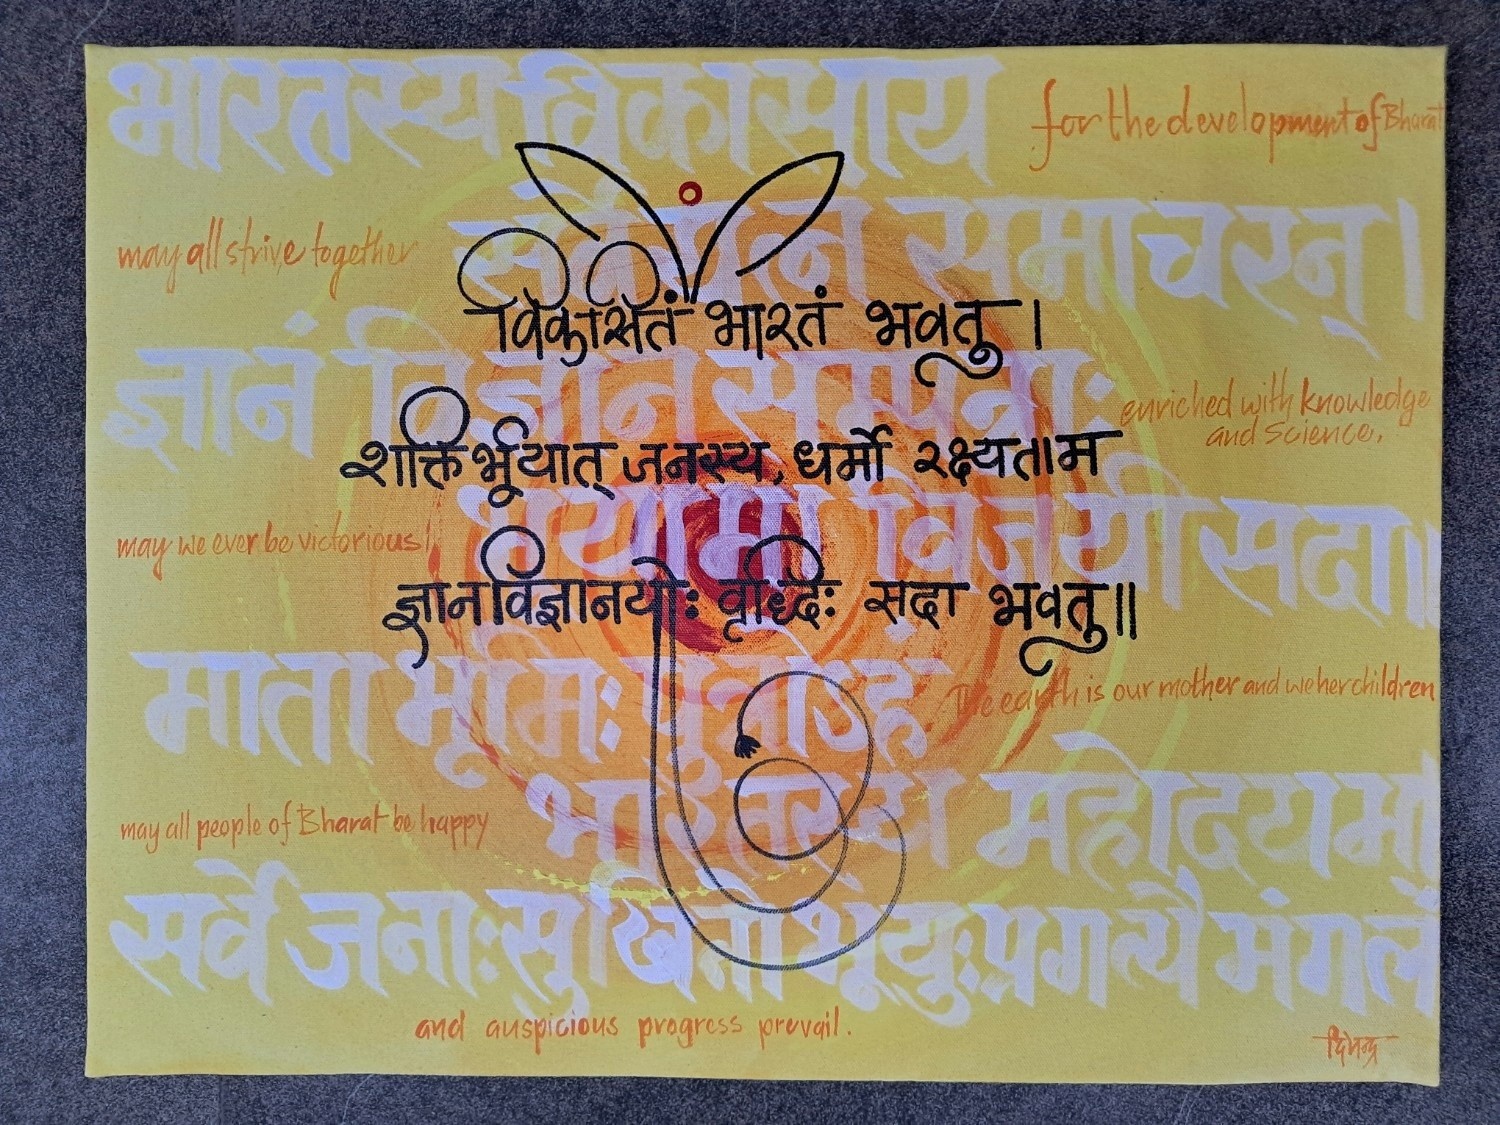 भारतस्य विकासाय
for the development of Bharat
may all strive together
समाचरन्।
विकसितं भारतं भवतु।
ज्ञानं विज्ञान सम्पन्नाः
enriched with knowledge
and science.
शक्तिर्भूयात् जनस्य, धर्मो रक्ष्यताम
विजयी सदा॥
may we ever be victorious!
ज्ञानविज्ञानयोः वृध्दिः सदा भवतु॥
माता भूमिः पुत्रोऽह
The earth is our mother and we her children
भारतस्य महोदयमा
may all people of Bharat be happy
सर्वे जनाः सुखिनो भूयुः प्रगत्यै मंगलं
and auspicious progress prevail.